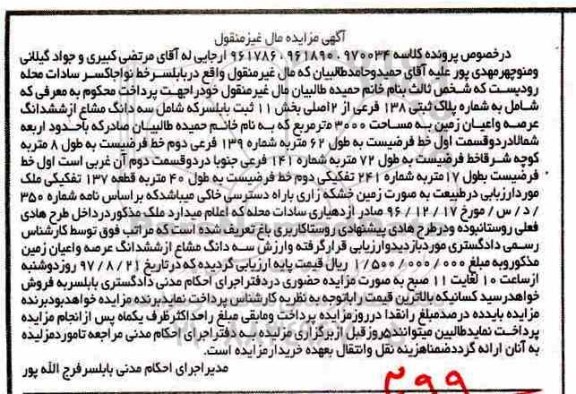 آگهی مزایده مال غیرمنقول
درخصوص پرونده کلاسه ۹۷۰۰۳۴ ، ۹۶۱۸۹۰ ، ۹۶۱۷۸۶ ارجایی له آقای مرتضی کبیری و جواد گیلانی
ومنوچهرمهدی پور علیه آقای حمیدوحامدطالبیان که مال غیرمنقول واقع دربابلسرخط نواجاکسر سادات محله
رودبست که شخص ثالث بنام خانم حمیده طالبیان مال غیرمنقول خودراجهت پرداخت محکوم به معرفی که
شامل به شماره پلاک ثبتی ۱۳۸ فرعی از ۲اصلی بخش ۱۱ ثبت بابلسرکه شامل سه دانگ مشاع ازششدانگ
عرصه واعیان زمین به مساحت ۳۰۰۰ مترمربع که به نام خانم حمیده طالبیان صادرکه باحدود اربعه
شمالادردوقسمت اول خط فرضیست به طول ۶۲ متربه شماره ۱۳۹ فرعی دوم خط فرضیست به طول ۸ متربه
کوچه شرقاخط فرضیست به طول ۷۲ متربه شماره ۱۴۱ فرعی جنوبا دردوقسمت دوم آن غربی است اول خط
فرضیست بطول ۱۷ متربه شماره ۲۴۱ تفکیکی دوم خط فرضیست به طول ۴۰ متربه قطعه ۱۳۷ تفکیکی ملک
موردارزیابی درطبیعت به صورت زمین خشکه زاری باراه دسترسی خاکی میباشدکه براساس نامه شماره ۳۵۰
/ د / س / مورخ ۹۶/۱۲/۱۷ صادر ازدهیاری سادات محله که اعلام میدارد ملک مذکوردرداخل طرح هادی
فعلی روستانبوده ودرطرح هادی پیشنهادی روستاکاربری باغ تعریف شده است که مراتب فوق توسط کارشناس
رسمی دادگستری موردبازدیدوارزیابی قرارگرفته وارزش سه دانگ مشاع ازششدانگ عرصه واعیان زمین
مذکوروبه مبلغ ۱/۵۰۰/۰۰۰/۰۰۰ ریال قیمت پایه ارزیابی گردیده که درتاریخ ۹۷/۸/۲۱ روزدوشنبه
ازساعت ۱۰ لغایت ۱۱ صبح به صورت مزایده حضوری دردفتراجرای احکام مدنی دادگستری بابلسربه فروش
خواهدرسید کسانیکه بالاترین قیمت راباتوجه به نظریه کارشناس پرداخت نمایدبرنده مزایده خواهدبودبرنده
مزایده بایدده درصدمبلغ رانقدا درروزمزایده پرداخت ومابقی مبلغ راحداکثرظرف یکماه پس ازانجام مزایده
پرداخت نمایدطالبین میتوانند۵روزقبل ازبرگزاری مزایده به دفتراجرای احکام مدنی مراجعه تاموردمزایده
به آنان ارائه گرددضمناهزینه نقل وانتقال بعهده خریدارمزایده است.
مدیراجرای احکام مدنی بابلسرفرج الله پور
۲۹۹